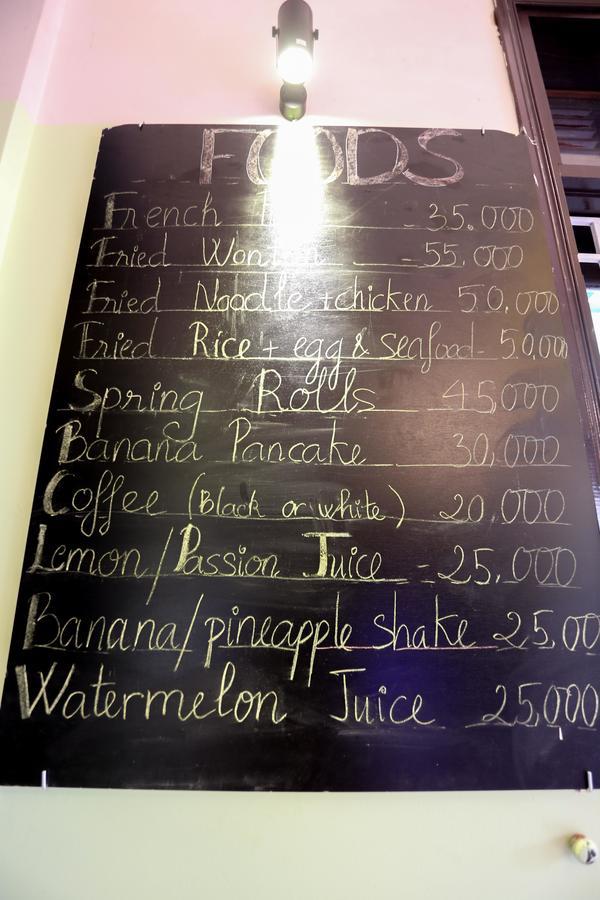 FOODS
French - 35.000
Fried - 55.000
Fried Noodle + chicken 50,000
Fried Rice + egg & seafood - 50,000
Spring Rolls 45,000
Banana Pancake 30,000
Coffee (Black or white) 20,000
Lemon/Passion Juice - 25,000
Banana/pineapple shake 25,00
Watermelon Juice 25,000